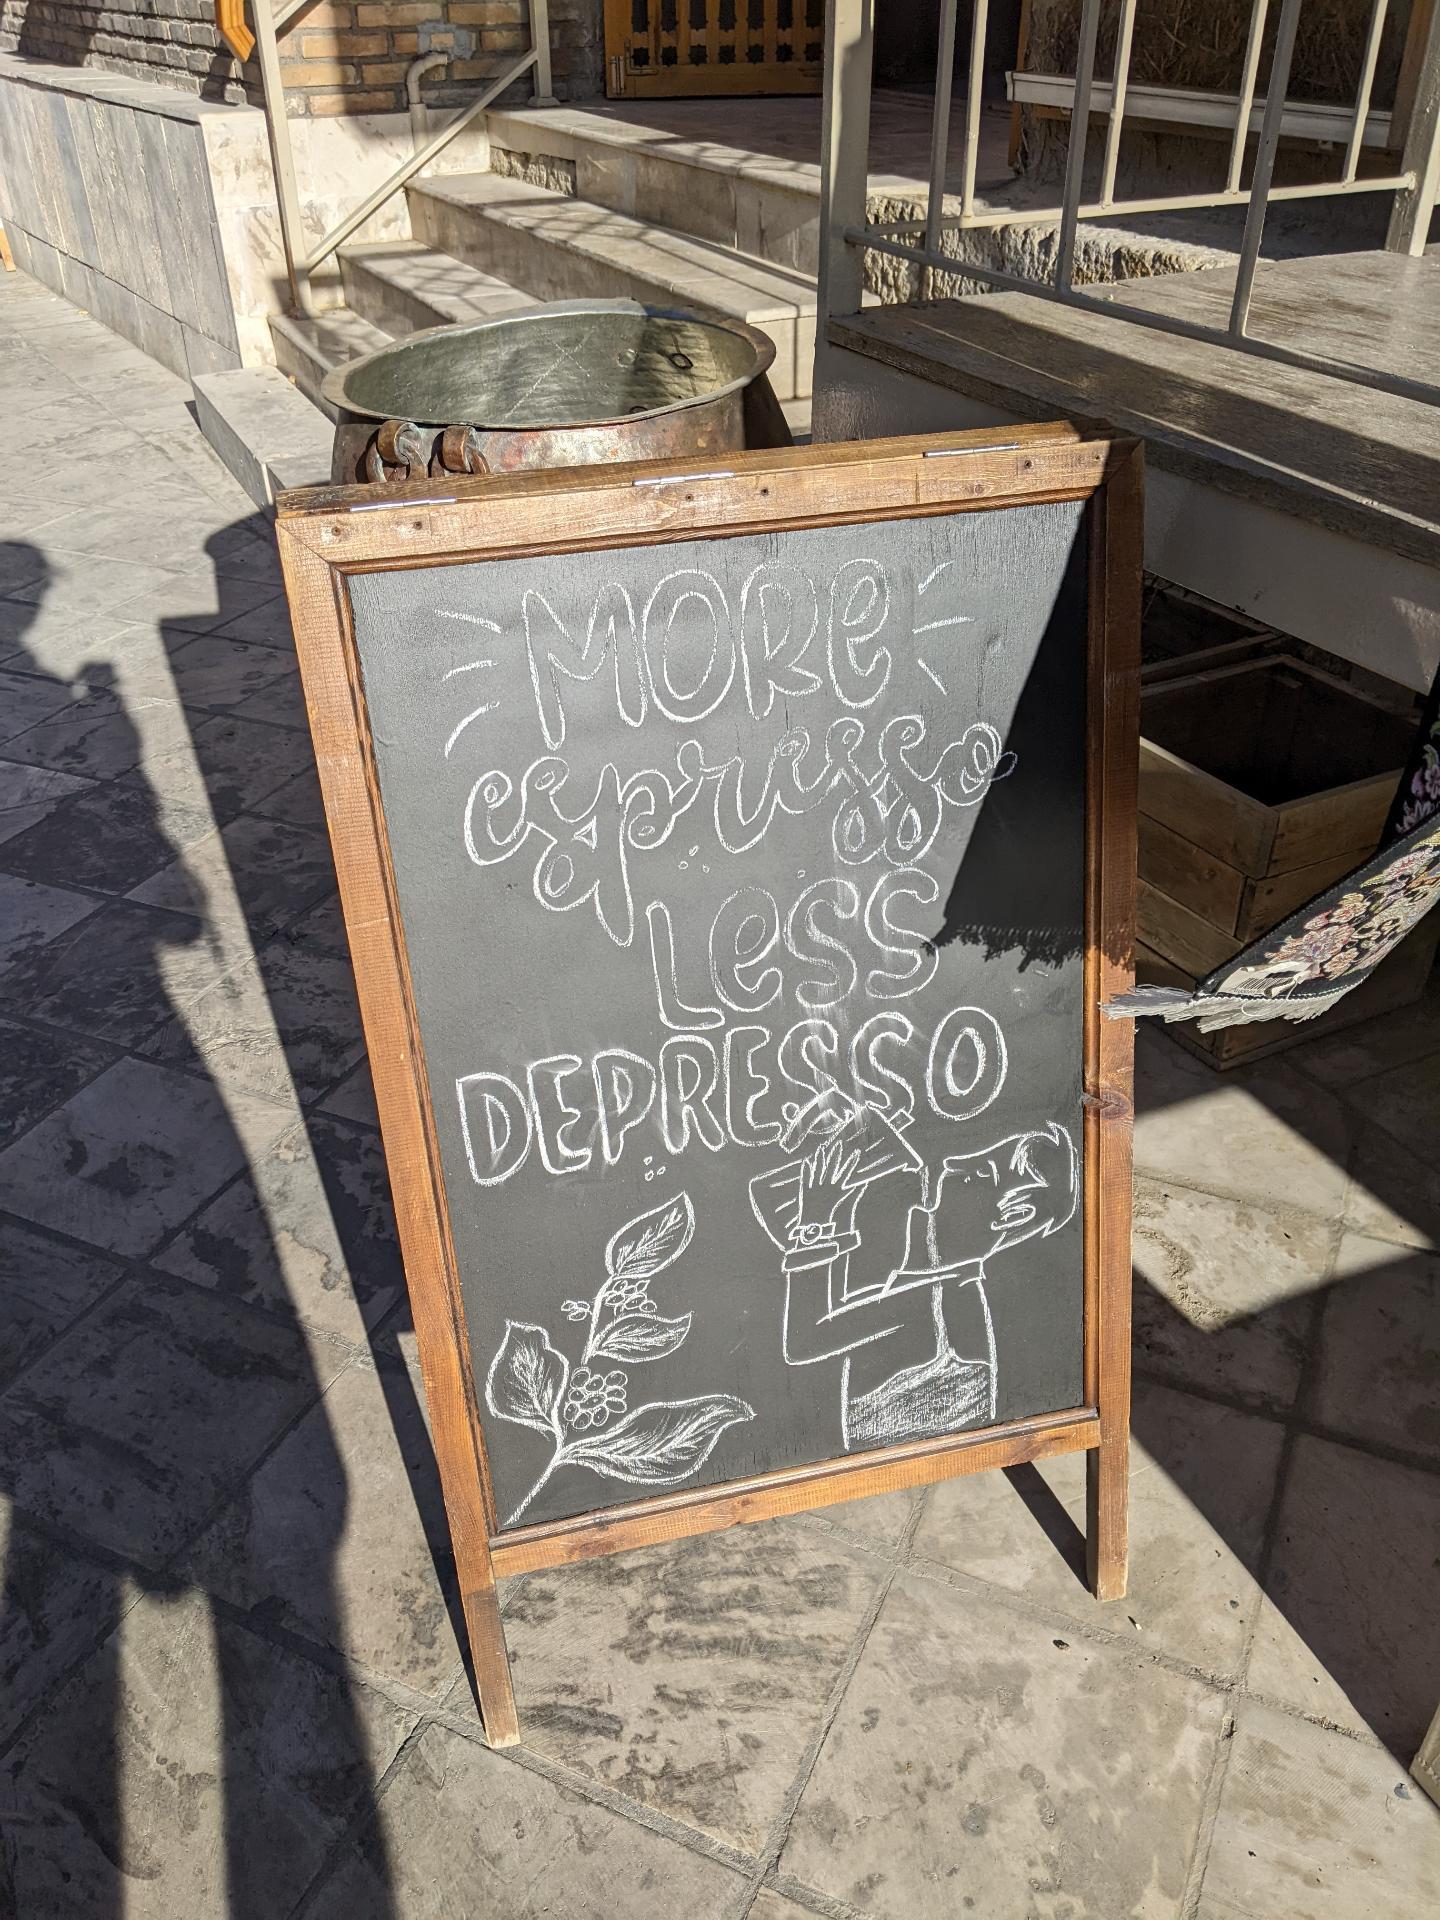 MORe
espresso
LeSS
DEPRESSO